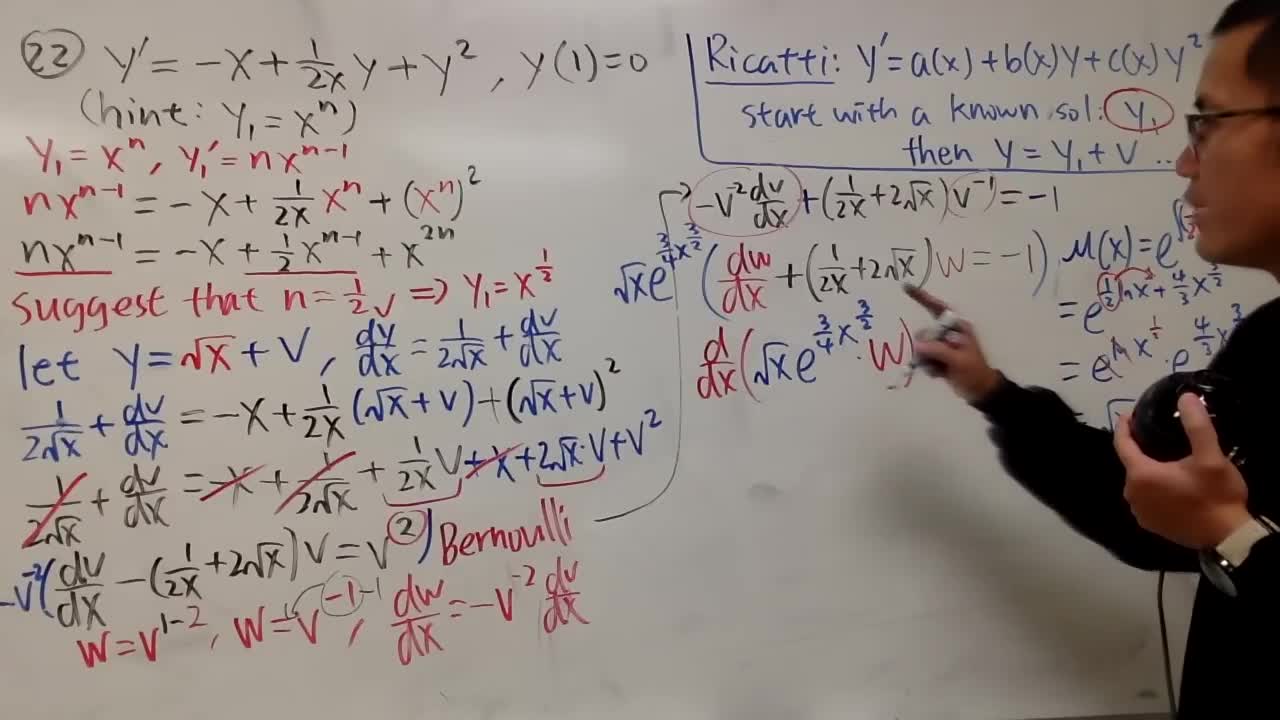 22 y' = -x + 1/2x y + y², y(1) = 0
(hint: y₁ = xⁿ)
y₁ = xⁿ, y₁' = nxⁿ⁻¹
nxⁿ⁻¹ = -x + 1/2x xⁿ + (xⁿ)²
nxⁿ⁻¹ = -x + 1/2 xⁿ⁻¹ + x²ⁿ
suggest that n = 1/2 √ ⇒ y₁ = x^(1/2)
let y = √x + v, dy/dx = 1/2√x + dv/dx
1/2√x + dv/dx = -x + 1/2x (√x + v) + (√x + v)²
1/2√x + dv/dx = -x + 1/2√x + 1/2x v + x + 2√x·v + v²
-v⁻² (dv/dx - (1/2x + 2√x) v = v²) Bernoulli
w = v¹⁻², w = v⁻¹⁻¹, dw/dx = -v⁻² dv/dx
Ricatti: y' = a(x) + b(x)y + c(x)y²
start with a known sol: y₁
then y = y₁ + v ...
-v⁻² dv/dx + (1/2x + 2√x) v⁻¹ = -1
√x e^(3/4 x^(3/2)) (dw/dx + (1/2x + 2√x) w = -1)
d/dx (√x e^(3/4 x^(3/2)) · w)
μ(x) = e
= e^(1/2 ln x + 4/3 x^(3/2))
= e^(ln x^(1/2)) · e^(4/3 x
= √